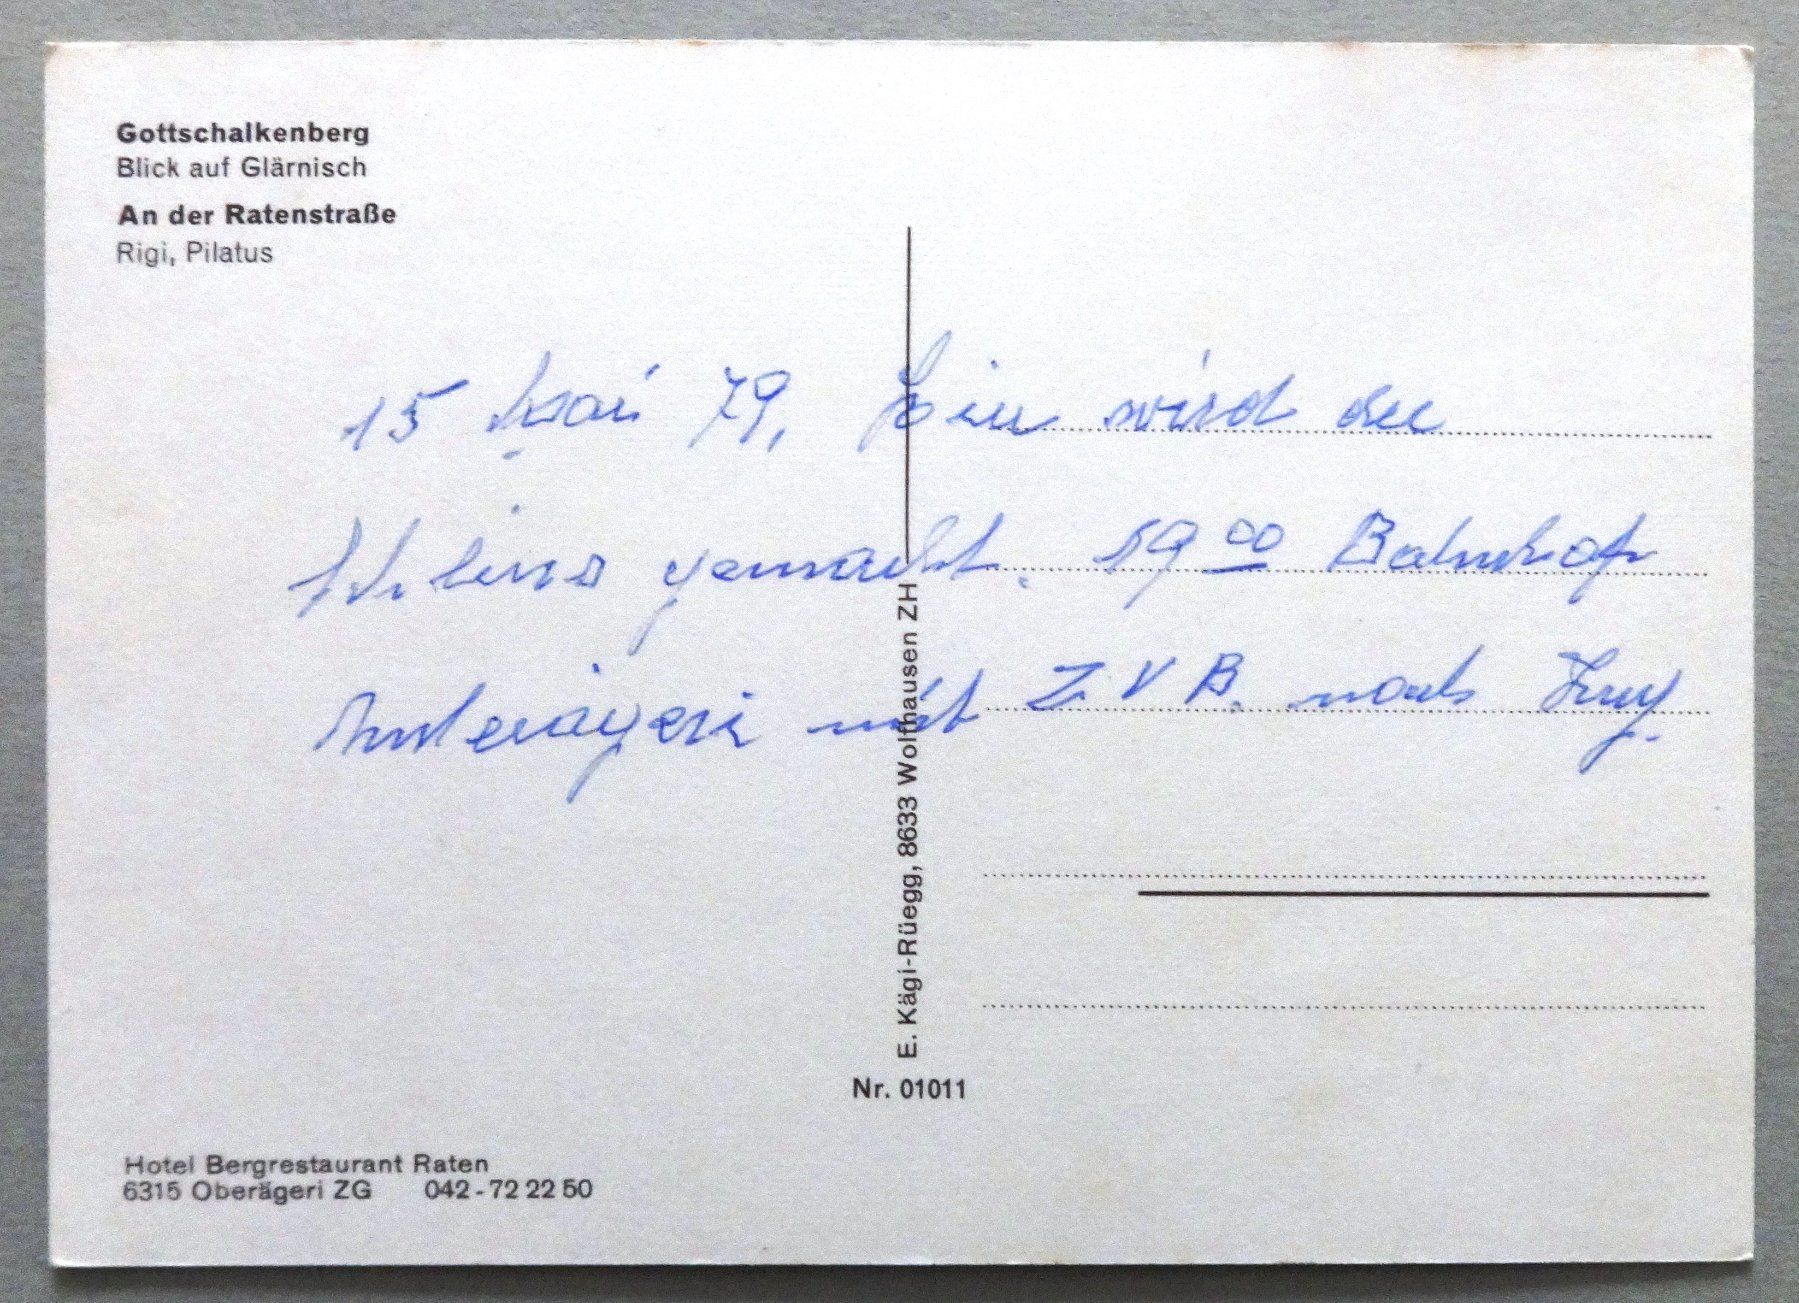 Gottschalkenberg
Blick auf Glärnisch
An der Ratenstraße
Rigi, Pilatus
15 Mai 79, hier wird der
Schluss gemacht. 19 00 Bahnhof
Unterägeri mit Z V B. nach Zug.
E. Kägi-Rüegg, 8633 Wolfhausen ZH
Nr. 01011
Hotel Bergrestaurant Raten
6315 Oberägeri ZG 042-72 22 50